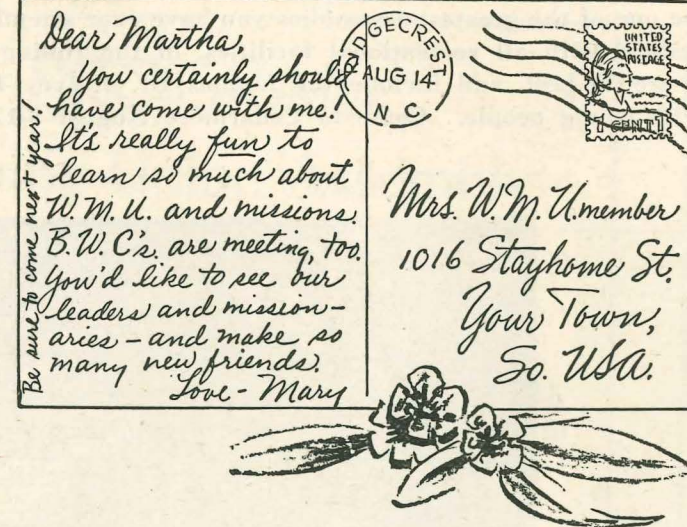 Dear Martha,
You certainly should
have come with me!
It's really fun to
learn so much about
W.M.U. and missions.
B.W.C's. are meeting, too.
You'd like to see our
leaders and mission-
aries – and make so
many new friends.
Love - Mary
Be sure to come next year!
RIDGECREST
AUG 14
N.C.
UNITED
STATES
POSTAGE
1 CENT 1
Mrs. W.M.U.member
1016 Stayhome St.
Your Town,
So. USA.